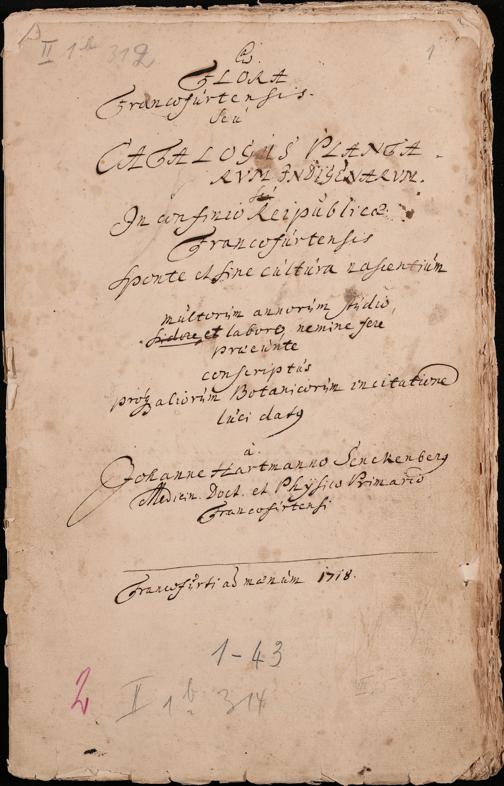 II 1b 312 1
FLORA
Francofúrtensis.
seú
CATALOGUS PLANTA-
RVM INDIGENARVM.
In confinio Reipublicæ
Francofúrtensis
sponte et sine cúltúra nascentiúm
múltorúm annorúm stúdio,
sudore et labore, nemine fere
præeúnte
conscriptús
aliorúm Botanicorúm incitatione
lúci datus
à.
Johanne Hartmanno Senckenberg
Medicin. Doct. et Physico Primario
Francofúrtensi
Francofúrti ad mænúm 1718.
1-43
2 II 1b 314